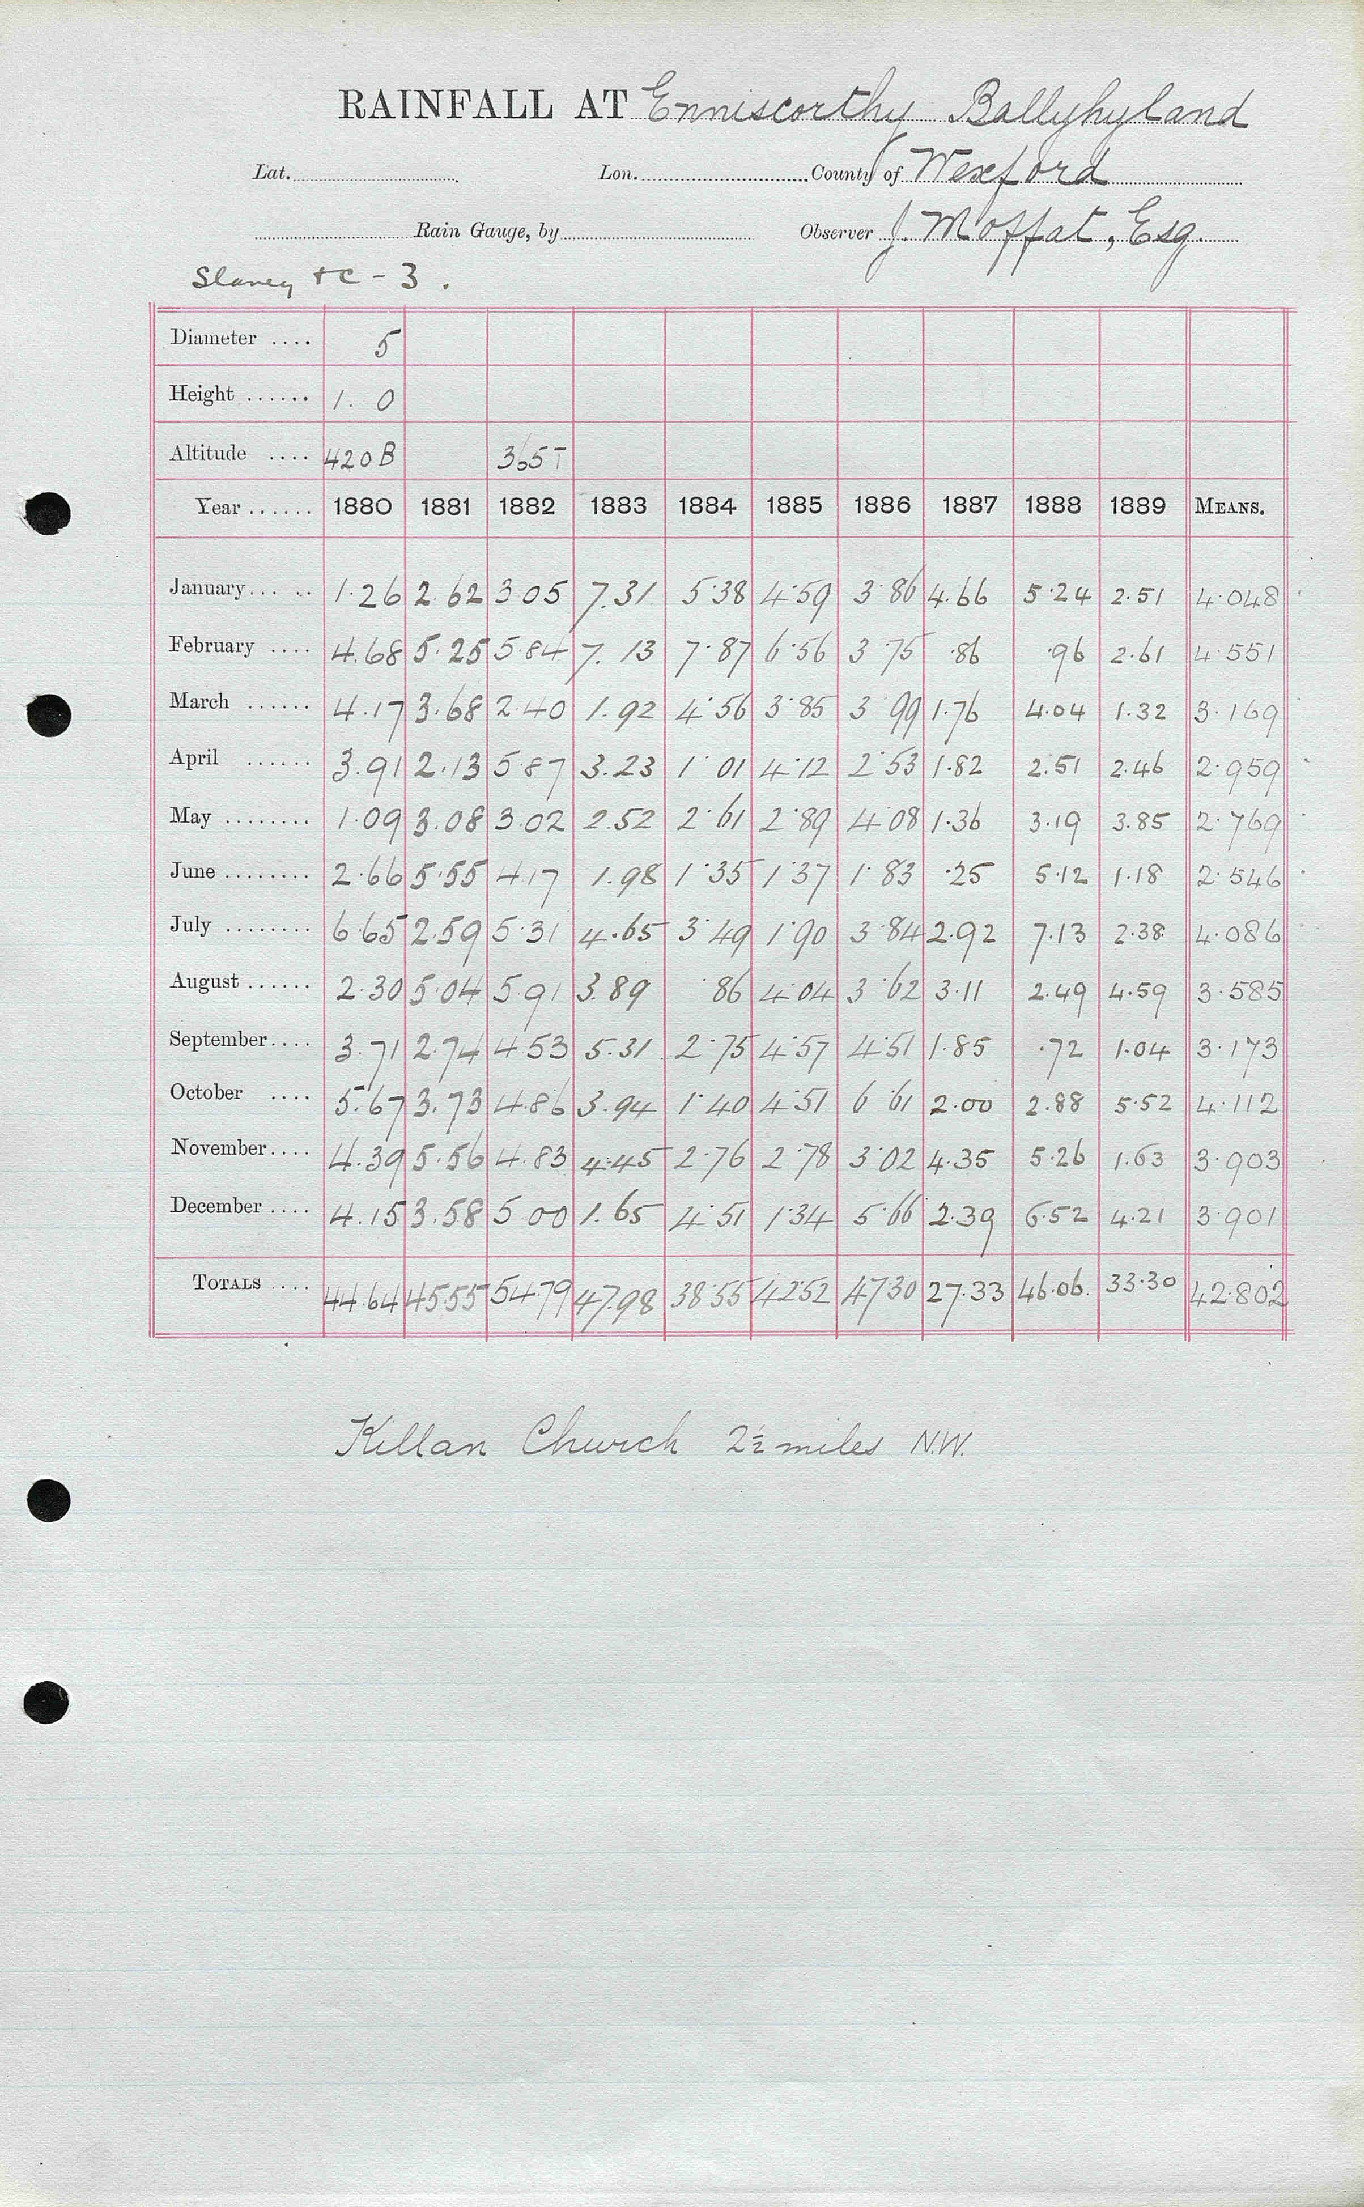 RAINFALL AT Enniscorthy Ballyhyland
Lat. Lon. County of Wexford
Rain Gauge, by Observer J. Moffat, Esq.
Slaney + C - 3.
Diameter .... 5
Height ...... 1. 0
Altitude .... 420B 365T
Year ...... 1880 1881 1882 1883 1884 1885 1886 1887 1888 1889 MEANS.
January ... .. 1.26 2.62 3.05 7.31 5.38 4.59 3.86 4.66 5.24 2.51 4.048
February .... 4.68 5.25 5.84 7.13 7.87 6.56 3.75 .86 .96 2.61 4.551
March ...... 4.17 3.68 2.40 1.92 4.56 3.85 3.99 1.76 4.04 1.32 3.169
April ...... 3.91 2.13 5.87 3.23 1.01 4.12 2.53 1.82 2.51 2.46 2.959
May ........ 1.09 3.08 3.02 2.52 2.61 2.89 4.08 1.36 3.19 3.85 2.769
June ........ 2.66 5.55 4.17 1.98 1.35 1.37 1.83 .25 5.12 1.18 2.546
July ........ 6.65 2.59 5.31 4.65 3.49 1.90 3.84 2.92 7.13 2.38 4.086
August ...... 2.30 5.04 5.91 3.89 .86 4.04 3.62 3.11 2.49 4.59 3.585
September .... 3.71 2.74 4.53 5.31 2.75 4.57 4.51 1.85 .72 1.04 3.173
October .... 5.67 3.73 4.86 3.94 1.40 4.51 6.61 2.00 2.88 5.52 4.112
November .... 4.39 5.56 4.83 4.45 2.76 2.78 3.02 4.35 5.26 1.63 3.903
December .... 4.15 3.58 5.00 1.65 4.51 1.34 5.66 2.39 6.52 4.21 3.901
TOTALS .... 44.64 45.55 54.79 47.98 38.55 42.52 47.30 27.33 46.06. 33.30 42.802
Killan Church 2½ miles N.W.